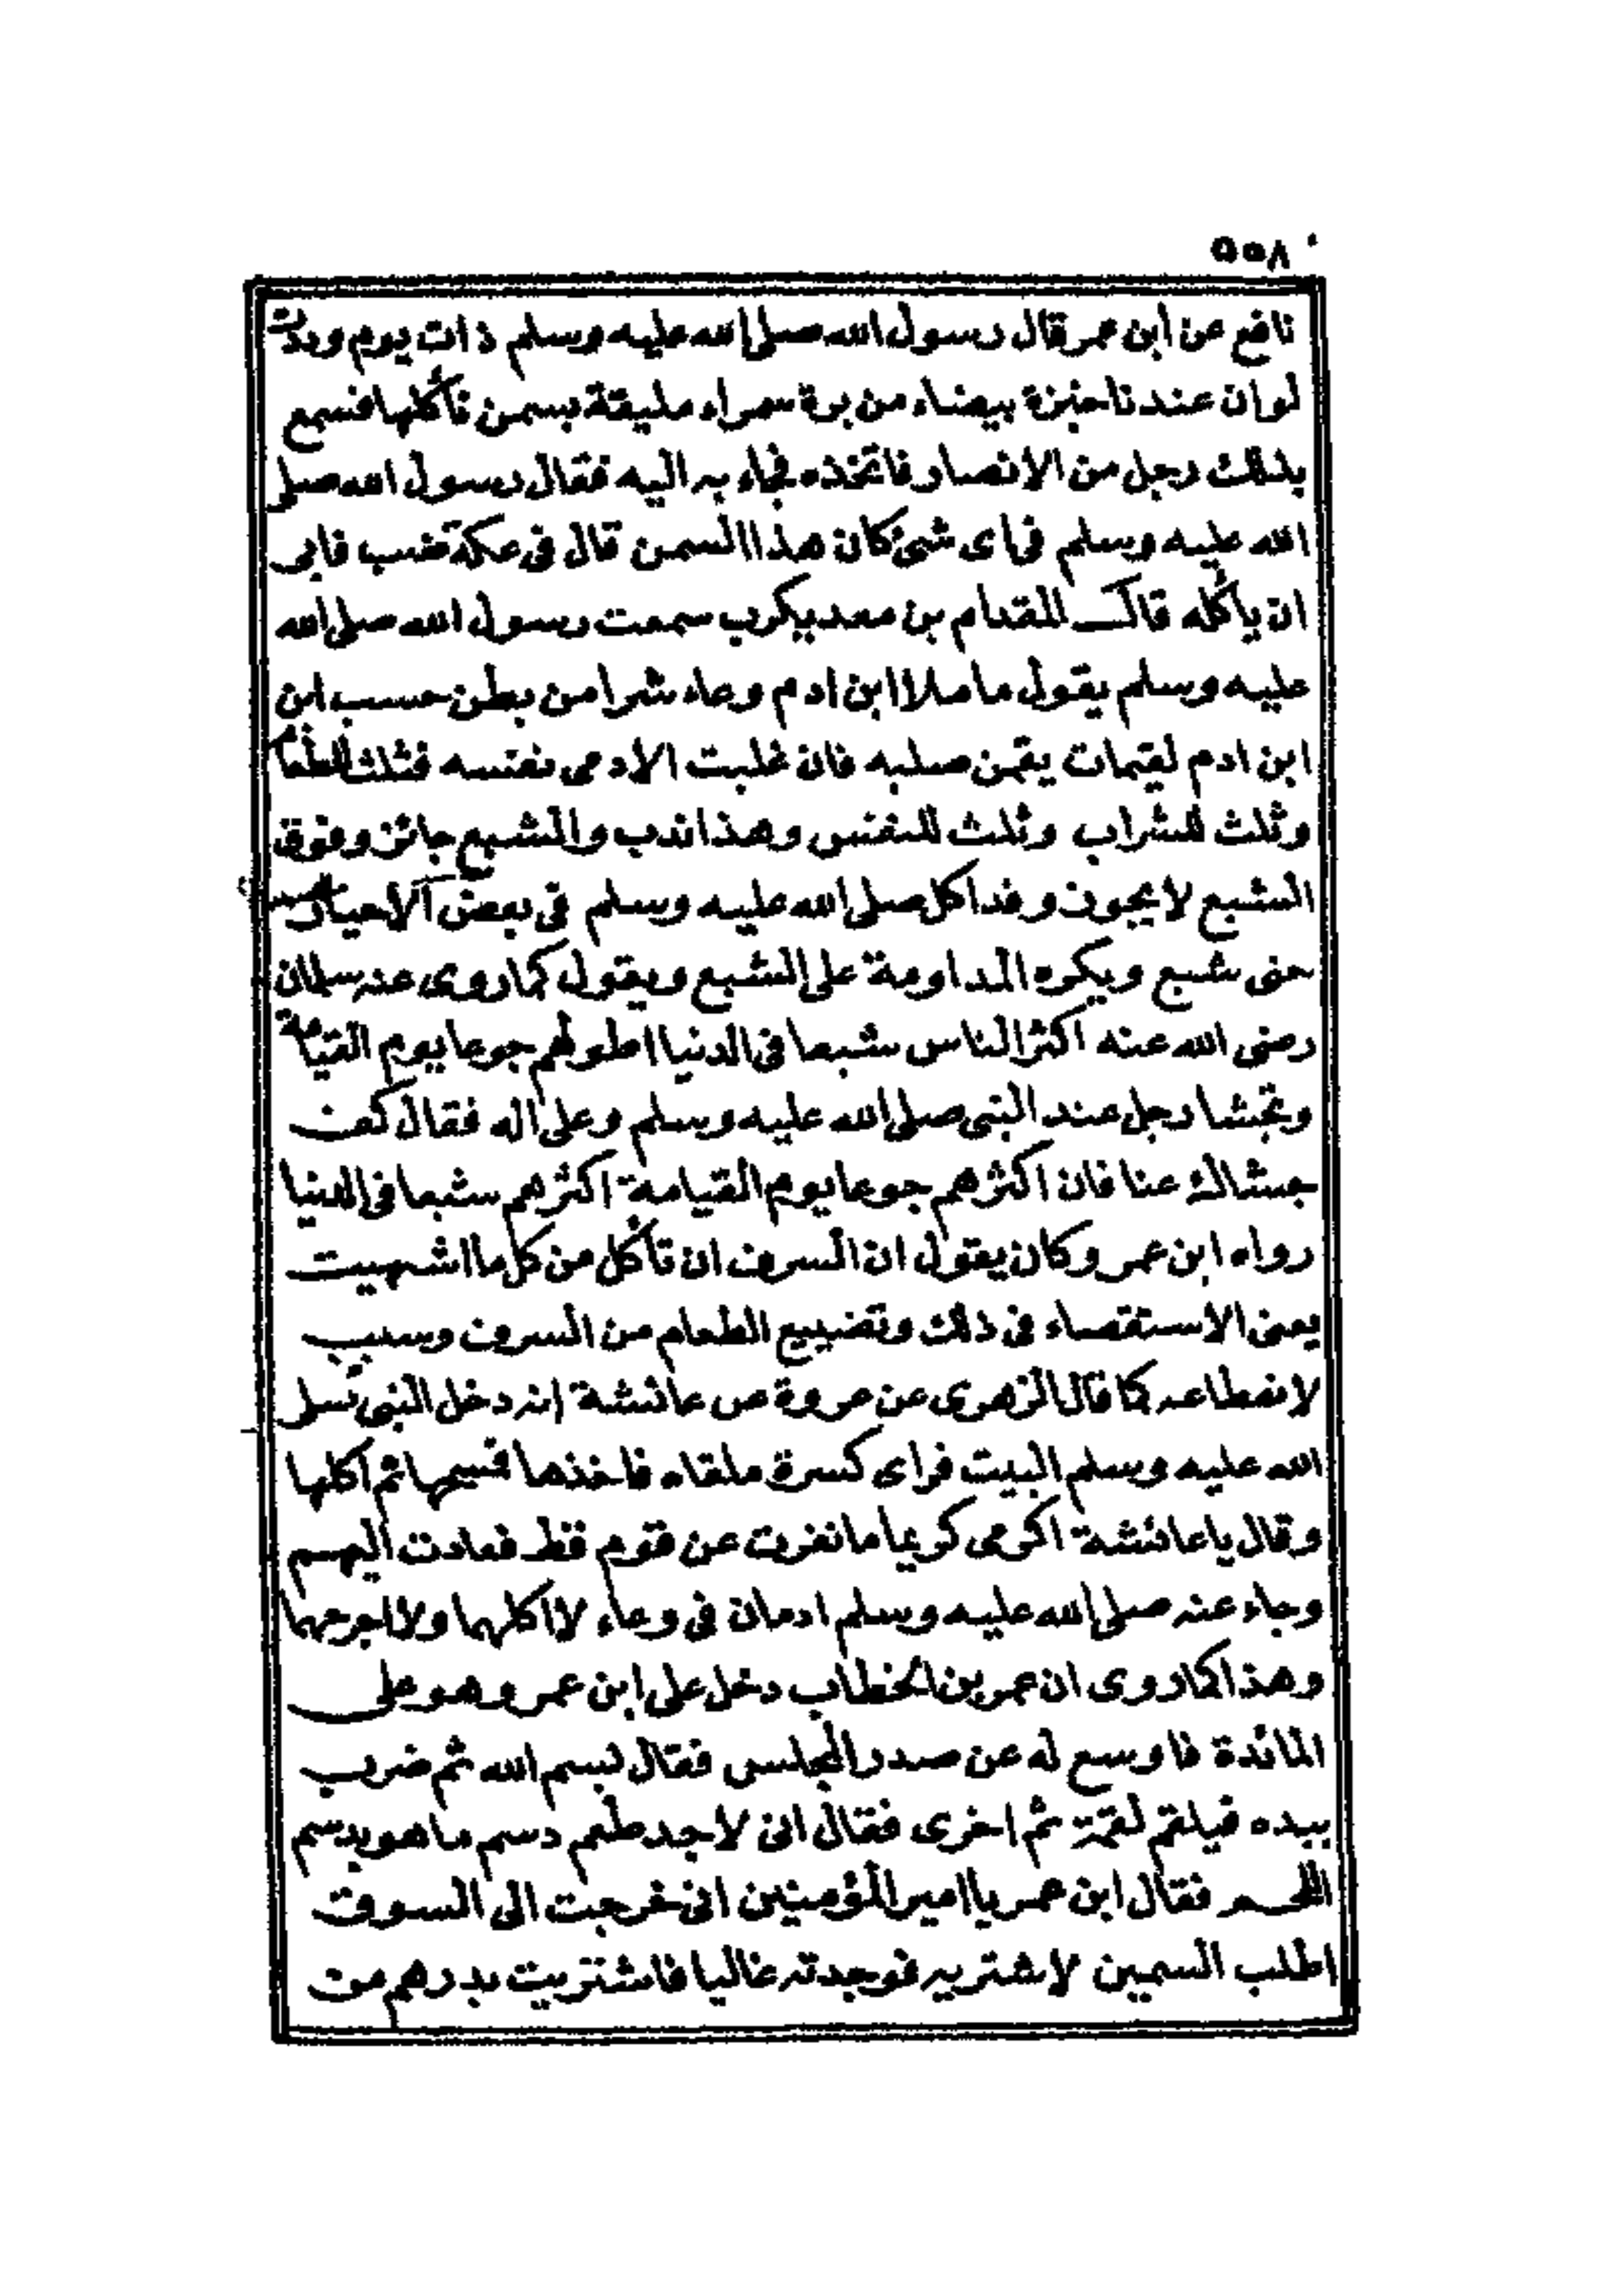 ٥٥٨
نافع عن ابن عمر قال رسول الله صلى الله عليه وسلم ذات يوم وددت
لو ان عندنا خبزة بيضاء من برة سمراء مليقة بسمن نأكلها فسمع
بذلك رجل من الانصار فاتخذه فجاء به اليه فقال رسول الله صلى
الله عليه وسلم فى اى شئ كان هذا السمن قال فى عكة ضب فابى
ان يأكله قال المقدام بن معد يكرب سمعت رسول الله صلى الله
عليه وسلم يقول ما ملاا ابن ادم وعاء شرا من بطن حسب ابن
ابن ادم لقيمات يقمن صلبه فان غلبت الادمى نفسه فثلث للطعام
وثلث للشراب وثلث للنفس وهذا ندب والشبع جائز وفوق
الشبع لا يجوز وقد اكل صلى الله عليه وسلم فى بعض الاحيان
حتى شبع ويكره المداومة على الشبع ويقول كما روى عنه سلمان
رضى الله عنه اكثر الناس شبعا فى الدنيا اطولهم جوعا يوم القيامة
وتجشا رجل عند النبى صلى الله عليه وسلم وعلى اله فقال كف
جشاك عنا فان اكثرهم جوعا يوم القيامة اكثرهم شبعا فى الدنيا
رواه ابن عمر وكان يقول ان السرف ان تأكل من كل ما اشهيت
يعنى الاستقصاء فى ذلك وتضييع الطعام من السرف وسبب
لانقطاعه كما قال الزهرى عن عروة عن عائشة انه دخل النبى صلى
الله عليه وسلم البيت فراى كسرة ملقاه فاخذها فمسحها ثم اكلها
وقال يا عائشة اكرمى كريما ما نفرت عن قوم قط فعادت اليهم
وجاء عنه صلى الله عليه وسلم ادمان فى وعاء لا اكلهما ولا احرمهما
وهذا كما روى ان عمر بن الخطاب دخل على ابن عمر وهو على
المائدة فاوسع له عن صدر المجلس فقال بسم الله ثم ضرب
بيده فيلقم لقمة ثم اخرى فقال انى لاجد طعم دسم ما هو بدسم
اللحم فقال ابن عمر يا امير المؤمنين انى خرجت الى السوق
اطلب السمين لاشتريه فوجدته غاليا فاشتريت بدرهم من